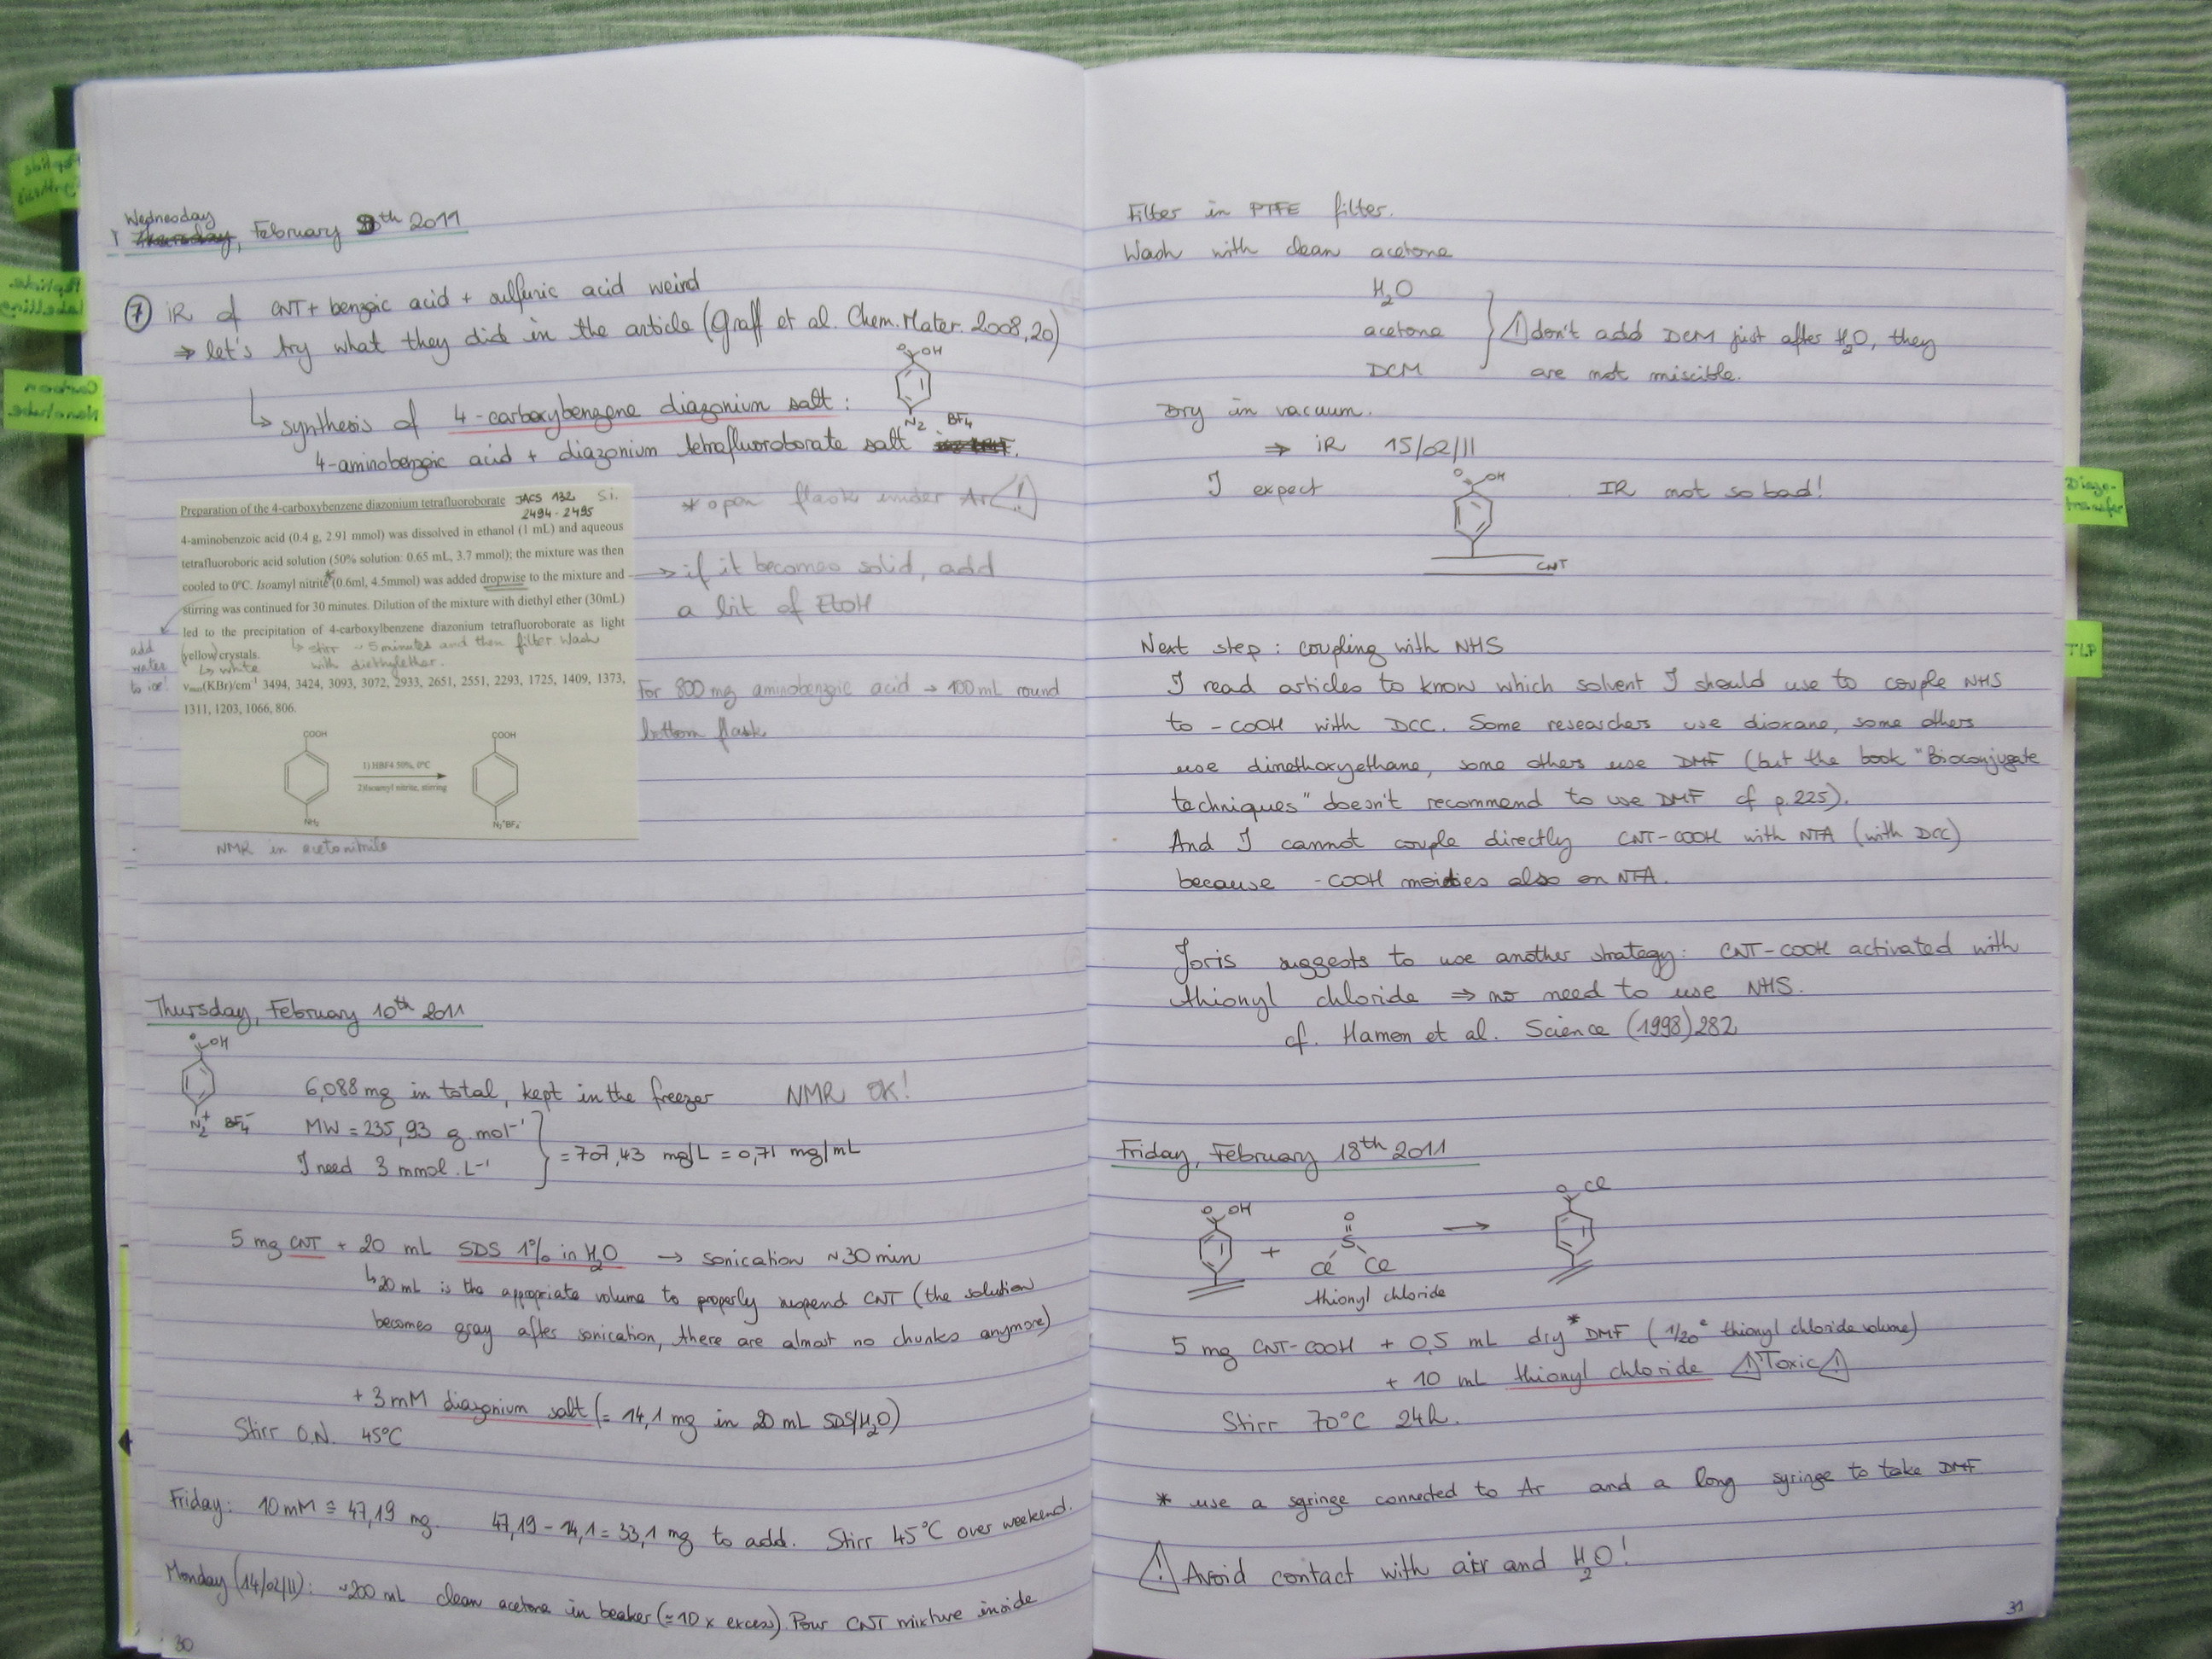 Wednesday
Thursday, February 9th 2011
⑦ IR of CNT + benzoic acid + sulfuric acid weird
⇒ let's try what they did in the article (Graff et al. Chem. Mater. 2008, 20)
↳ synthesis of 4-carboxybenzene diazonium salt :
O OH
N2 BF4
4-aminobenzoic acid + diazonium tetrafluoroborate salt
* open flask under Ar ⚠
Preparation of the 4-carboxybenzene diazonium tetrafluoroborate JACS 132 S.i.
2494-2495
4-aminobenzoic acid (0.4 g, 2.91 mmol) was dissolved in ethanol (1 mL) and aqueous
tetrafluoroboric acid solution (50% solution: 0.65 mL, 3.7 mmol); the mixture was then
cooled to 0°C. Isoamyl nitrite* (0.6ml, 4.5mmol) was added dropwise to the mixture and
stirring was continued for 30 minutes. Dilution of the mixture with diethyl ether (30mL)
led to the precipitation of 4-carboxylbenzene diazonium tetrafluoroborate as light
(yellow) crystals.
↳ white
↳ stirr ~ 5 minutes and then filter. Wash
with diethylether.
νmax(KBr)/cm-1 3494, 3424, 3093, 3072, 2933, 2651, 2551, 2293, 1725, 1409, 1373,
1311, 1203, 1066, 806.
COOH
NH2
1) HBF4 50%, 0°C
2) Isoamyl nitrite, stirring
COOH
N2+BF4-
add
water
to ice!
→ if it becomes solid, add
a bit of EtOH
For 800 mg aminobenzoic acid → 100 mL round
bottom flask
NMR in acetonitrile
Thursday, February 10th 2011
O OH
N2+ BF4-
6,088 mg in total, kept in the freezer NMR OK!
MW = 235,93 g.mol-1
I need 3 mmol.L-1
} = 707,43 mg/L = 0,71 mg/mL
5 mg CNT + 20 mL SDS 1% in H2O → sonication ~30 min
↳ 20 mL is the appropriate volume to properly suspend CNT (the solution
becomes gray after sonication, there are almost no chunks anymore)
+ 3 mM diazonium salt (= 14,1 mg in 20 mL SDS/H2O)
Stirr O.N. 45°C
Friday: 10 mM ≡ 47,19 mg. 47,19 - 14,1 = 33,1 mg to add. Stirr 45°C over weekend.
Monday (14/02/11): ~200 mL clean acetone in beaker (≈10 x excess). Pour CNT mixture inside
30
Filter in PTFE filter.
Wash with clean acetone
H2O
acetone
DCM
} ⚠ don't add DCM just after H2O, they
are not miscible.
Dry in vacuum.
⇒ IR 15/02/11
I expect
O OH
CNT
IR not so bad!
Next step : coupling with NHS
I read articles to know which solvent I should use to couple NHS
to -COOH with DCC. Some researchers use dioxane, some others
use dimethoxyethane, some others use DMF (but the book "Bioconjugate
techniques" doesn't recommend to use DMF cf p.225).
And I cannot couple directly CNT-COOH with NTA (with DCC)
because -COOH moieties also on NTA.
Joris suggests to use another strategy: CNT-COOH activated with
thionyl chloride ⇒ no need to use NHS.
cf. Hamon et al. Science (1998) 282
Friday, February 18th 2011
O OH
+
O
S
Cl Cl
thionyl chloride
→
O Cl
5 mg CNT-COOH + 0,5 mL dry* DMF (1/20e thionyl chloride volume)
+ 10 mL thionyl chloride ⚠ Toxic ⚠
Stirr 70°C 24h.
* use a syringe connected to Ar and a long syringe to take DMF
⚠ Avoid contact with air and H2O!
31
Peptide
Synthesis
Peptide
Labelling
Carbon
Nanotube
Diazo-
transfer
TLP